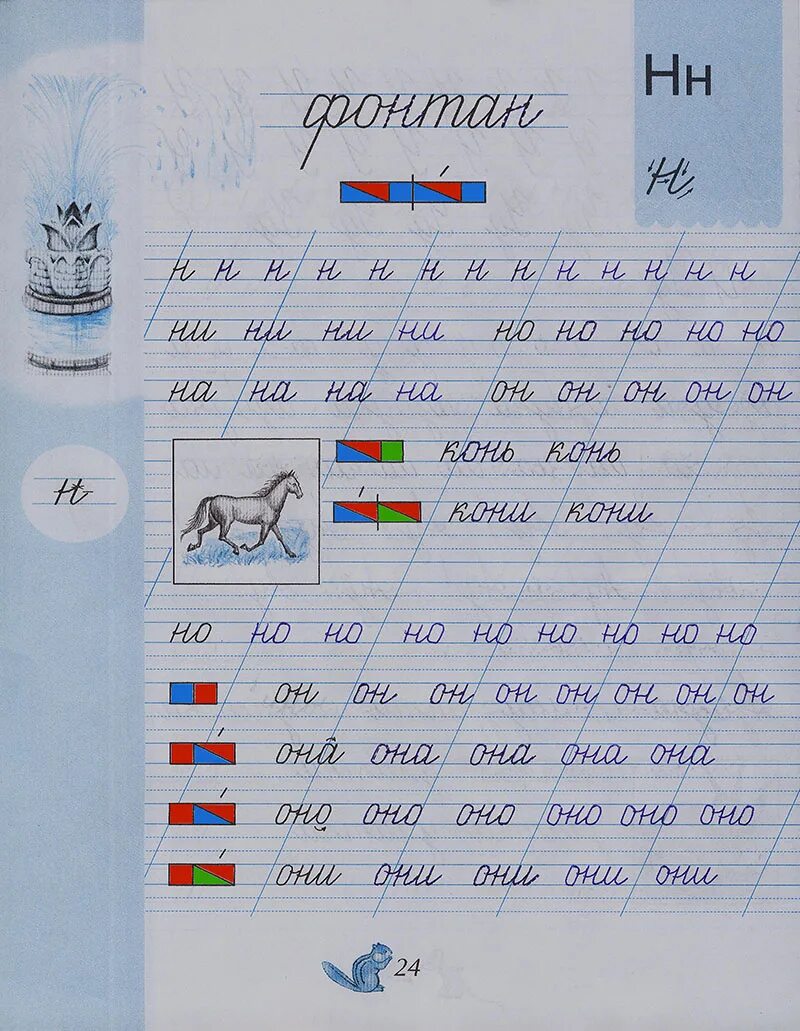 Нн
фонтан
н
н н н н н н н н н н н н н
ни ни ни ни но но но но но
на на на на он он он он он
н
конь конь
кони кони
но но но но но но но но но
он он он он он он он он
она она она она она
оно оно оно оно оно оно
они они они они они
24